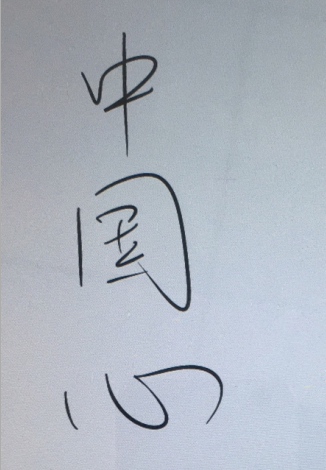 中国心